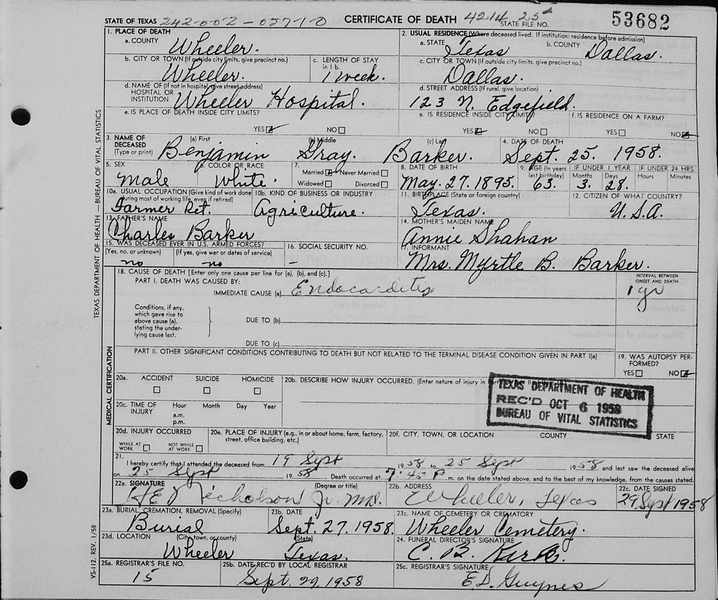 STATE OF TEXAS 242-002-02710 CERTIFICATE OF DEATH 4214 25d STATE FILE NO. 53682
1. PLACE OF DEATH
a. COUNTY Wheeler.
2. USUAL RESIDENCE (Where deceased lived. If institution: residence before admission)
a. STATE Texas b. COUNTY Dallas.
b. CITY OR TOWN (If outside city limits, give precinct no.) Wheeler.
c. LENGTH OF STAY in 1 b. 1 week.
c. CITY OR TOWN (If outside city limits, give precinct no.) Dallas.
d. NAME OF (If not in hospital, give street address) HOSPITAL OR INSTITUTION Wheeler Hospital.
d. STREET ADDRESS (If rural, give location) 123 N. Edgefield.
e. IS PLACE OF DEATH INSIDE CITY LIMITS? YES NO
e. IS RESIDENCE INSIDE CITY LIMITS? YES NO
f. IS RESIDENCE ON A FARM? YES NO
3. NAME OF DECEASED (Type or print) (a) First Benjamin (b) Middle Shay. (c) Last Barker.
4. DATE OF DEATH Sept. 25. 1958.
5. SEX Male
6. COLOR OR RACE White.
7. Married Never Married Widowed Divorced
8. DATE OF BIRTH May. 27. 1895.
9. AGE (In years last birthday) 63.
IF UNDER 1 YEAR Months 3. Days 28.
IF UNDER 24 HRS. Hours Min.
10a. USUAL OCCUPATION (Give kind of work done during most of working life, even if retired) Farmer Ret.
10b. KIND OF BUSINESS OR INDUSTRY Agriculture.
11. BIRTHPLACE (State or foreign country) Texas.
12. CITIZEN OF WHAT COUNTRY? U.S.A.
13. FATHER'S NAME Charles Barker
14. MOTHER'S MAIDEN NAME Annie Shahan
15. WAS DECEASED EVER IN U.S. ARMED FORCES?
(Yes, no, or unknown) no (If yes, give war or dates of service) no
16. SOCIAL SECURITY NO.
17. INFORMANT Mrs. Myrtle B. Barker.
18. CAUSE OF DEATH [Enter only one cause per line for (a), (b), and (c).]
PART I. DEATH WAS CAUSED BY:
IMMEDIATE CAUSE (a) Endocarditis
INTERVAL BETWEEN ONSET AND DEATH 1 yr
Conditions, if any, which gave rise to above cause (a), stating the underlying cause last.
DUE TO (b)
DUE TO (c)
PART II. OTHER SIGNIFICANT CONDITIONS CONTRIBUTING TO DEATH BUT NOT RELATED TO THE TERMINAL DISEASE CONDITION GIVEN IN PART I(a)
19. WAS AUTOPSY PERFORMED? YES NO
20a. ACCIDENT SUICIDE HOMICIDE
20b. DESCRIBE HOW INJURY OCCURRED. (Enter nature of injury in Part
TEXAS DEPARTMENT OF HEALTH
REC'D OCT 6 1958
BUREAU OF VITAL STATISTICS
20c. TIME OF INJURY Hour Month Day Year a.m. p.m.
20d. INJURY OCCURRED WHILE AT WORK NOT WHILE AT WORK
20e. PLACE OF INJURY (e.g., in or about home, farm, factory, street, office building, etc.)
20f. CITY, TOWN, OR LOCATION COUNTY STATE
21. I hereby certify that I attended the deceased from 19 Sept 1958 to 25 Sept 1958 and last saw the deceased alive
on 25 Sept 1958. Death occurred at 7:45 P. m. on the date stated above, and to the best of my knowledge, from the causes stated.
22a. SIGNATURE (Degree or title) H E Nicholson Jr. MD.
22b. ADDRESS Wheeler, Texas
22c. DATE SIGNED 29 Sept 1958
23a. BURIAL, CREMATION, REMOVAL (Specify) Burial
23b. DATE Sept. 27. 1958.
23c. NAME OF CEMETERY OR CREMATORY Wheeler Cemetery.
23d. LOCATION (City, town, or county) Wheeler (State) Texas.
24. FUNERAL DIRECTOR'S SIGNATURE C. B. Kirk.
25a. REGISTRAR'S FILE NO. 15
25b. DATE REC'D BY LOCAL REGISTRAR Sept 29, 1958
25c. REGISTRAR'S SIGNATURE E D. Guynes
TEXAS DEPARTMENT OF HEALTH—BUREAU OF VITAL STATISTICS
MEDICAL CERTIFICATION
VS-112 REV. 1/58